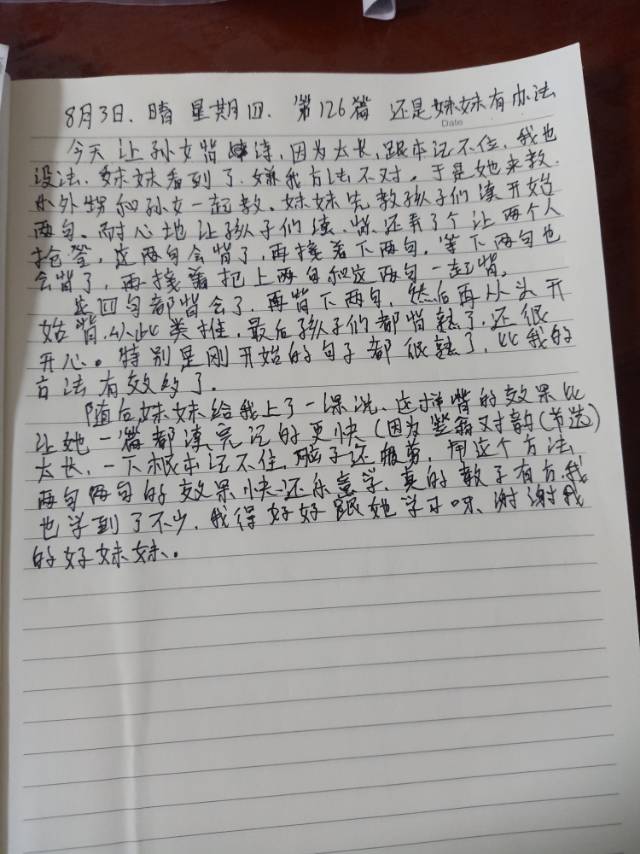 8月3日. 晴 星期四. 第126篇 还是妹妹有办法
Date
今天让孙女背诗, 因为太长, 跟本记不住, 我也
没法. 妹妹看到了, 嫌我方法不对. 于是她来教.
小外甥和孙女一起教. 妹妹先教孩子们读开始
两句. 耐心地让孩子们读. 背. 还弄了个让两个人
抢答, 这两句会背了, 再接着下两句. 等下两句也
会背了, 再接着把上两句和这两句一起背.
这四句都背会了, 再背下两句, 然后再从头开
始背. 以此类推, 最后孩子们都背熟了, 还很
开心。特别是刚开始的句子都很熟了, 比我的
方法有效多了.
随后妹妹给我上了一课说, 这样背的效果比
让她一篇都读完记的更快(因为笠翁对韵(节选)
太长, 一下根本记不住, 脑子还疲劳, 用这个方法,
两句两句的效果快还乐意学, 真的教子有方, 我
也学到了不少, 我得好好跟她学习呀, 谢谢我
的好妹妹。